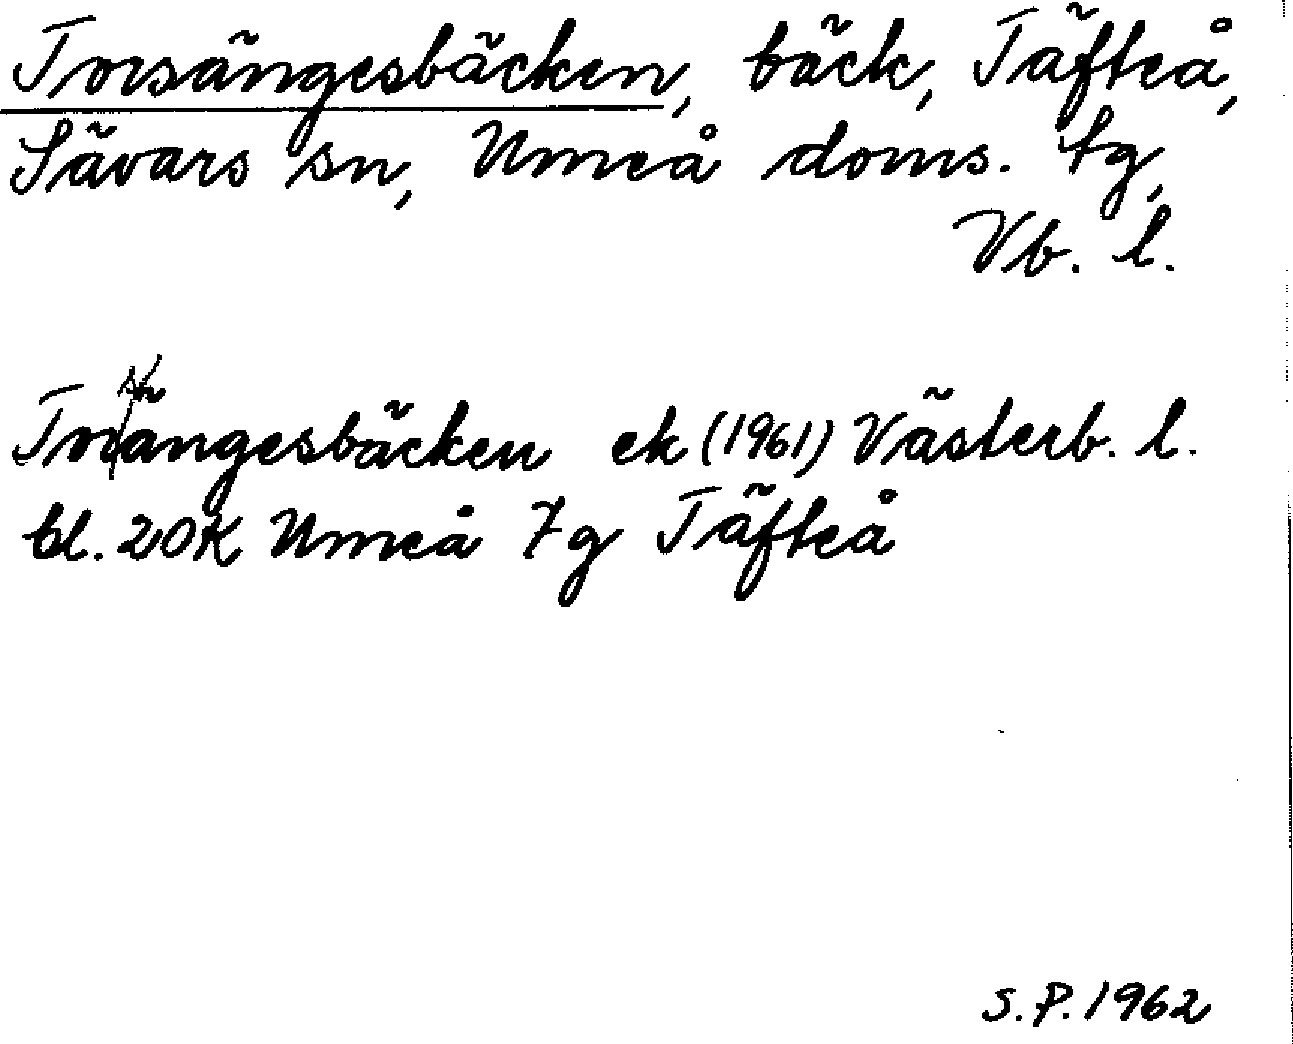 Torsängesbäcken, bäck, Täfteå,
Sävars sn, Umeå doms. tg,
Vb. l.
Torsängesbäcken ek (1961) Västerb. l.
bl. 20K Umeå 7g Täfteå
S.P. 1962